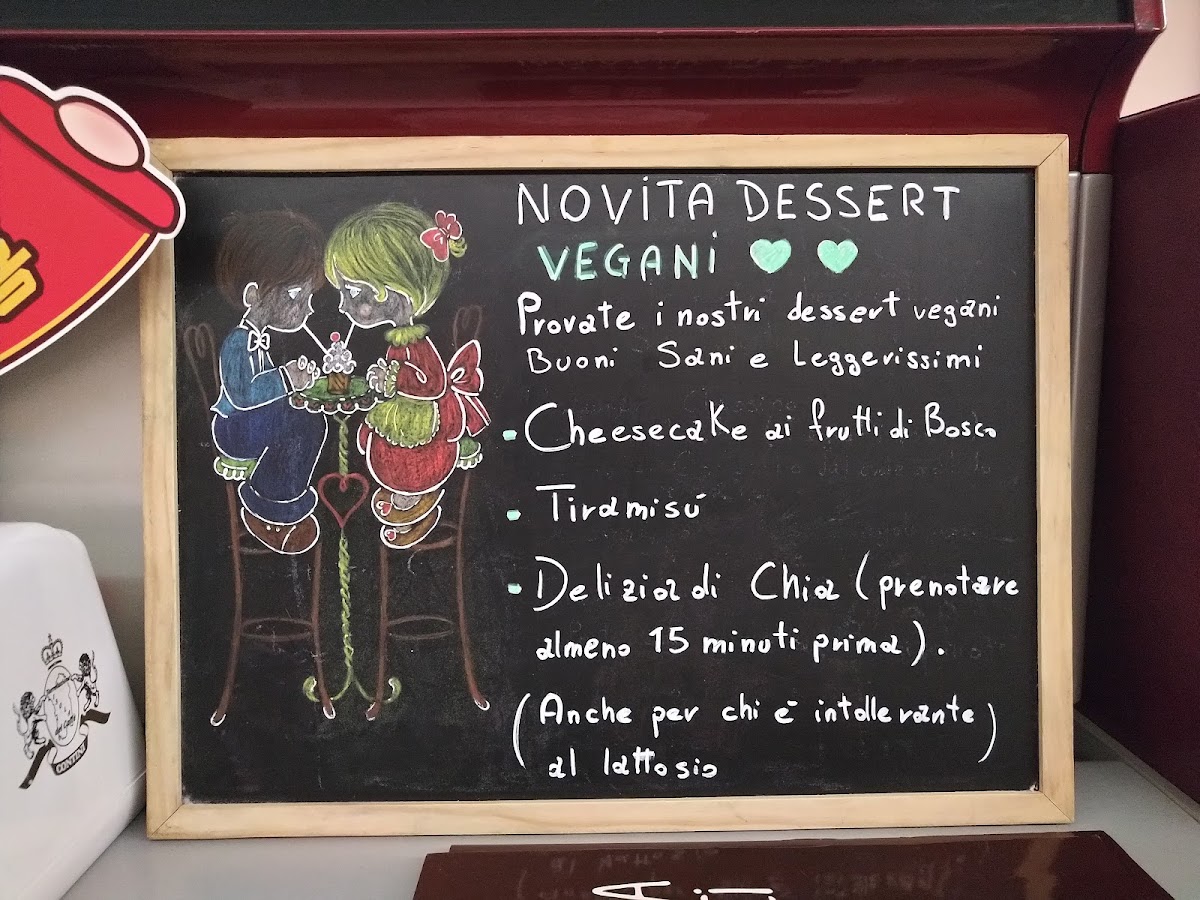 NOVITA DESSERT
VEGANI
Provate i nostri dessert vegani
Buoni Sani e Leggerissimi
- Cheesecake ai frutti di Bosco
- Tiramisú
- Delizia di Chia (prenotare
almeno 15 minuti prima).
(Anche per chi é intollerante)
al lattosio
CONTINI
%